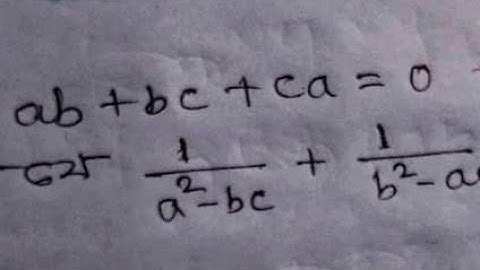 ab + bc + ca = 0
1/(a²-bc) + 1/(b²-a